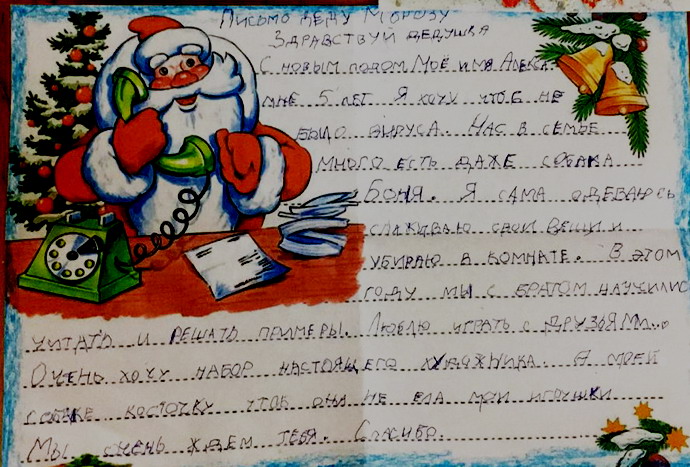 Письмо Деду Морозу
Здравствуй дедушка
С новым годом Моё имя Алекса.
мне 5 лет Я хочу чтоб не
было вируса Нас в семье
много есть даже собака
Боня. Я сама одеваюсь
слаживаю свои вещи и
убираю в комнате. В этом
году мы с братом научились
читать и решать примеры. Люблю играть с друзьями...
Очень хочу набор настоящего художника. А моей
собаке косточку чтоб она не ела мои игрушки
Мы очень ждем тебя. Спасибо.